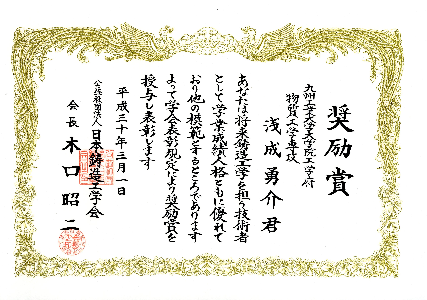 奨励賞
九州工業大学大学院工学府
物質工学専攻
浅成勇介君
あなたは将来鋳造工学を担う技術者
として学業成績人格ともに優れて
おり他の模範とするところであります
よって学会表彰規定により奨励賞を
授与し表彰します
平成三十年三月一日
公益社団法人日本鋳造工学会
会長 木口昭二